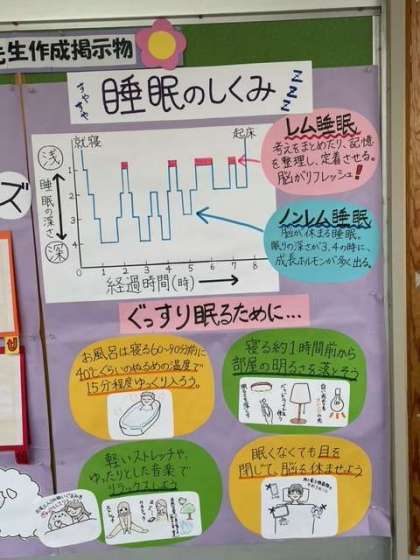 先生作成掲示物
すやすや
睡眠のしくみ
ZZZ
就寝
起床
浅
睡眠の深さ
深
1
2
3
4
0 1 2 3 4 5 6 7 8
経過時間(時)
レム睡眠
考えをまとめたり、記憶
を整理し、定着させる。
脳がリフレッシュ!
ノンレム睡眠
脳が休まる睡眠。
眠りの深さが3,4の時に、
成長ホルモンが多く出る。
ズ
ぐっすり眠るために…
お風呂は寝る60〜90分前に
40℃くらいのぬるめの温度で
15分程度ゆっくり入ろう。
寝る約1時間前から
部屋の明るさを落とそう
軽いストレッチや、
ゆったりとした音楽で
リラックスしよう
眠くなくても目を
閉じて、脳を休ませよう